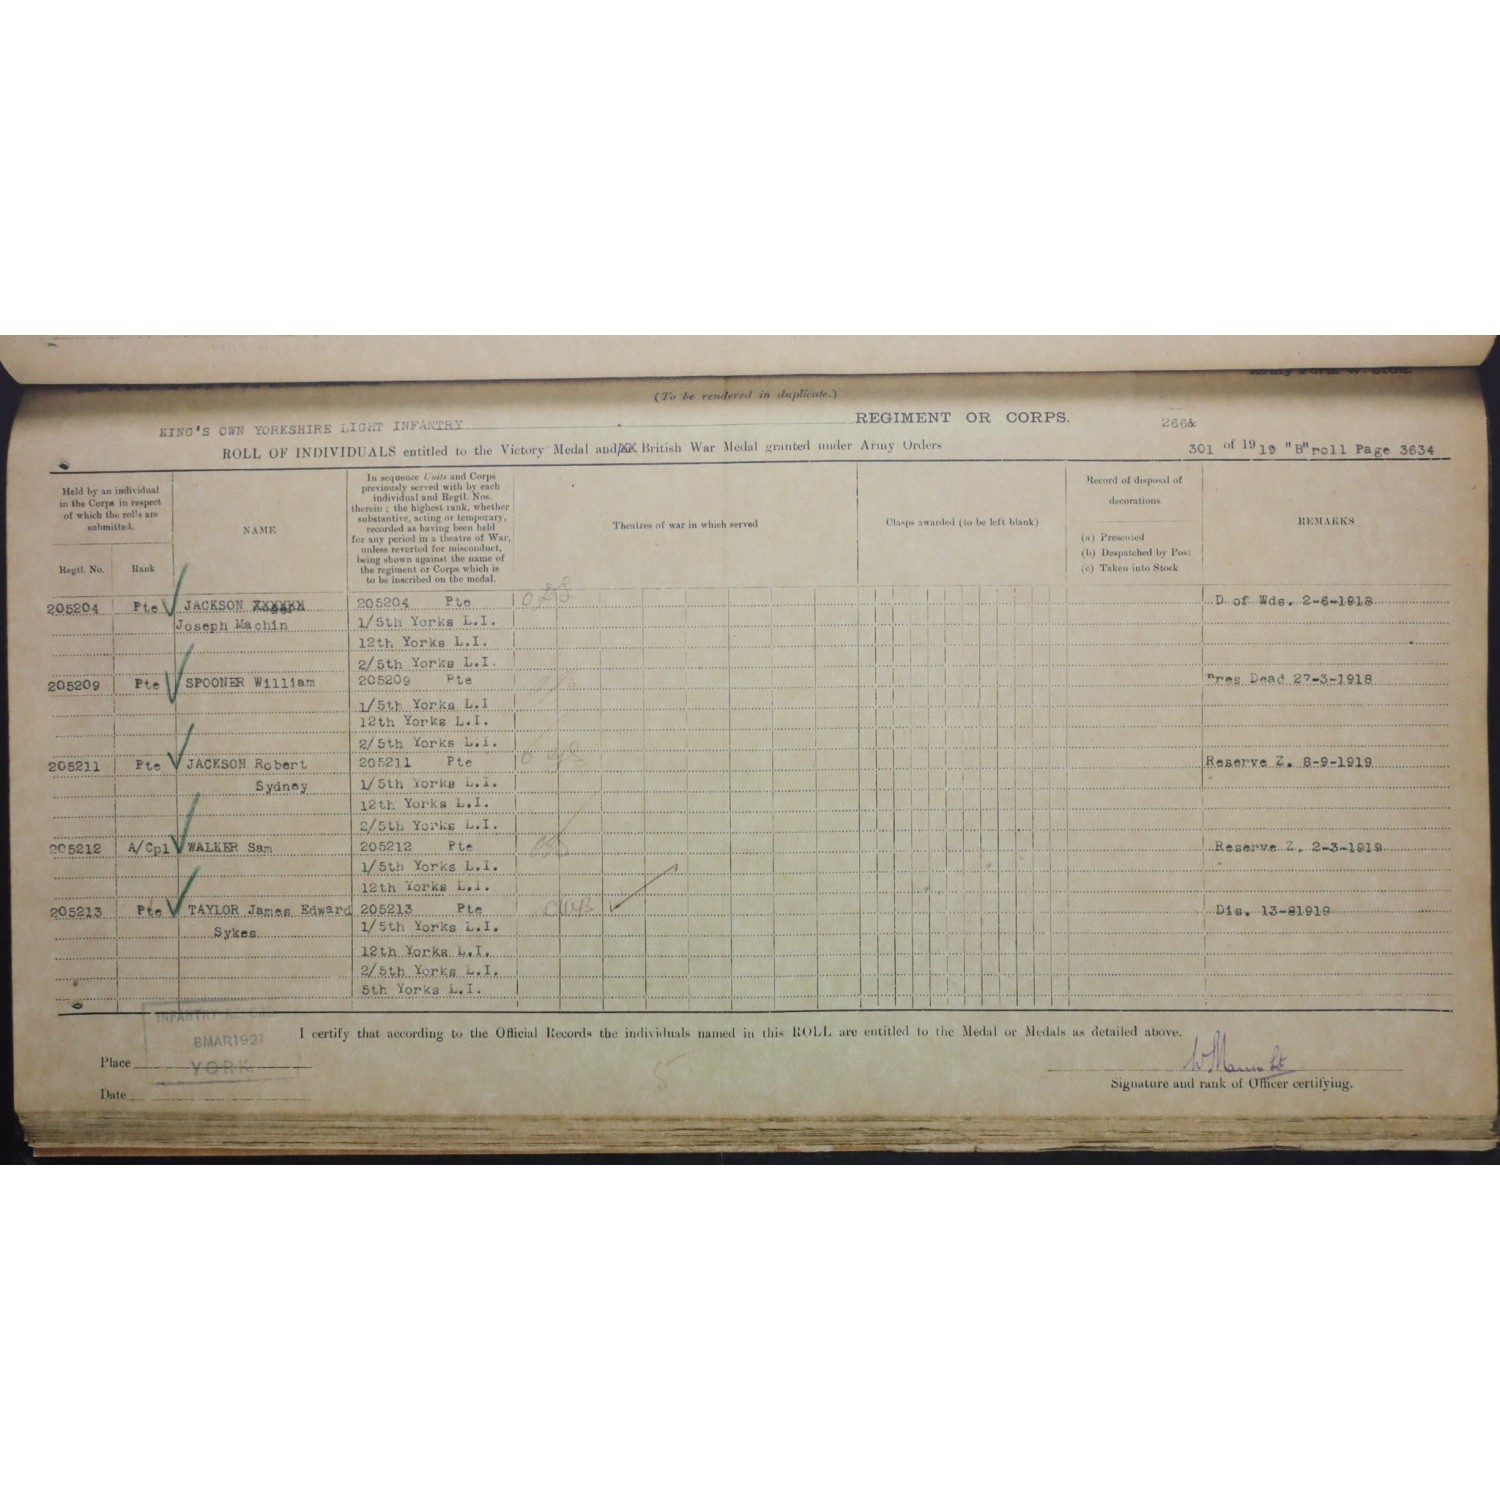 (To be rendered in duplicate.)
KING'S OWN YORKSHIRE LIGHT INFANTRY REGIMENT OR CORPS. 266&
ROLL OF INDIVIDUALS entitled to the Victory Medal and/XX British War Medal granted under Army Orders 301 of 1919 "B"roll Page 3634
Held by an individual
in the Corps in respect
of which the rolls are
submitted.
Regtl. No. Rank
NAME
In sequence Units and Corps
previously served with by each
individual and Regtl. Nos.
therein ; the highest rank, whether
substantive, acting or temporary,
recorded as having been held
for any period in a theatre of War,
unless reverted for misconduct,
being shown against the name of
the regiment or Corps which is
to be inscribed on the medal.
Theatres of war in which served
Clasps awarded (to be left blank)
Record of disposal of
decorations
(a) Presented
(b) Despatched by Post
(c) Taken into Stock
REMARKS
205204 Pte JACKSON 205204 Pte D of Wds. 2-6-1918
Joseph Machin 1/5th Yorks L.I.
12th Yorks L.I.
2/5th Yorks L.I.
205209 Pte SPOONER William 205209 Pte Pres Dead 27-3-1918
1/5th Yorks L.I
12th Yorks L.I.
2/5th Yorks L.I.
205211 Pte JACKSON Robert 205211 Pte Reserve Z. 8-9-1919
Sydney 1/5th Yorks L.I.
12th Yorks L.I.
2/5th Yorks L.I.
205212 A/Cpl WALKER Sam 205212 Pte Reserve Z. 2-3-1919
1/5th Yorks L.I.
12th Yorks L.I.
205213 Pte TAYLOR James Edward 205213 Pte Dis. 13-81919
Sykes 1/5th Yorks L.I.
12th Yorks L.I.
2/5th Yorks L.I.
5th Yorks L.I.
I certify that according to the Official Records the individuals named in this ROLL are entitled to the Medal or Medals as detailed above.
INFANTRY
8MAR1921
YORK
Place
Date
Signature and rank of Officer certifying.